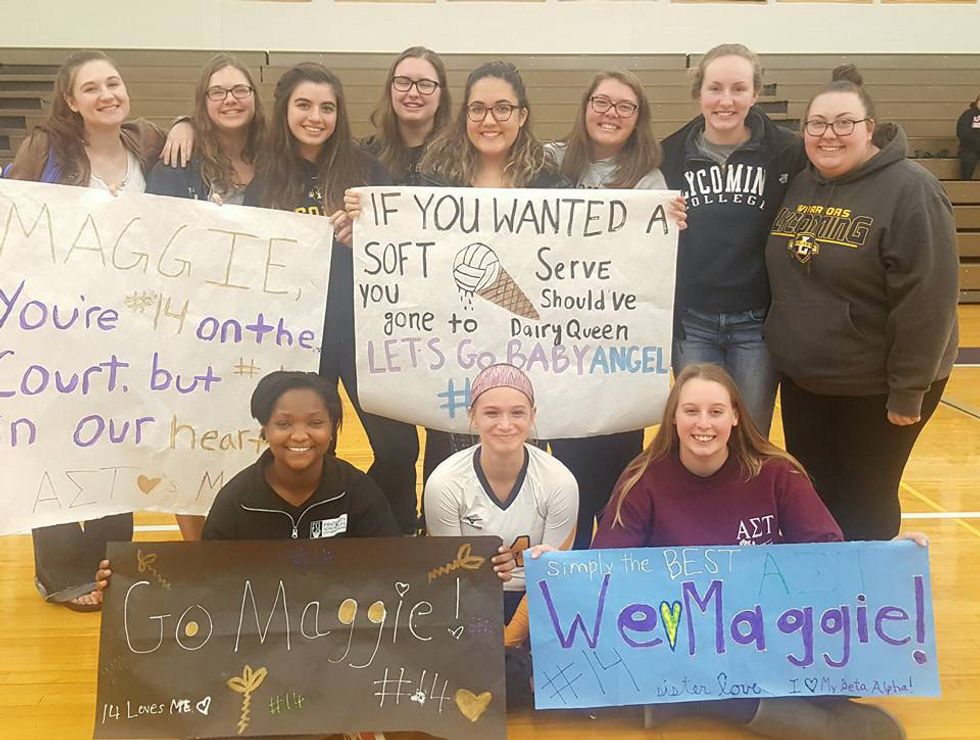 MAGGIE,
You're #14 on the
Court. but #
in our heart
ΑΣΤ ♥'s M
IF YOU WANTED A
SOFT Serve
YOU Should've
gone to Dairy Queen
LET'S GO BABY ANGEL
#
LYCOMING
COLLEGE
WARRIORS
LYCOMING
ΑΣΤ
Go Maggie!
#14
#14
14 Loves ME ♡
simply the BEST ΑΣΤ
We ♥ Maggie!
#14 sister love I ♡ My Beta Alpha!